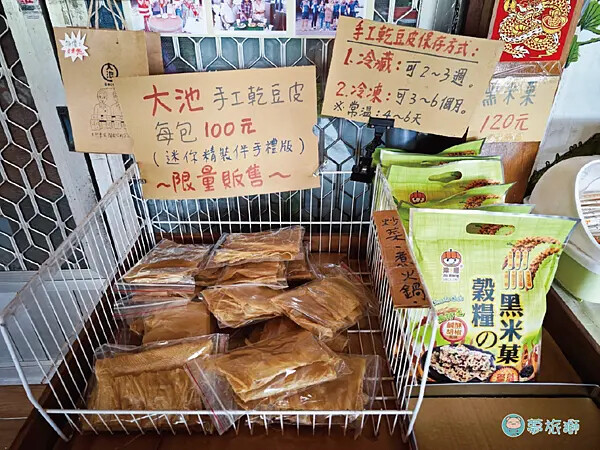 大池 手工乾豆皮
每包100元
(迷你精裝伴手禮版)
~限量販售~
手工乾豆皮保存方式：
1.冷藏：可2~3週。
2.冷凍：可3~6個月。
※常溫：4~6天
黑米菓
120元
炒菜、煮火鍋
大池
穀糧の
黑米菓
鹹酥
胡椒
夢旅獅